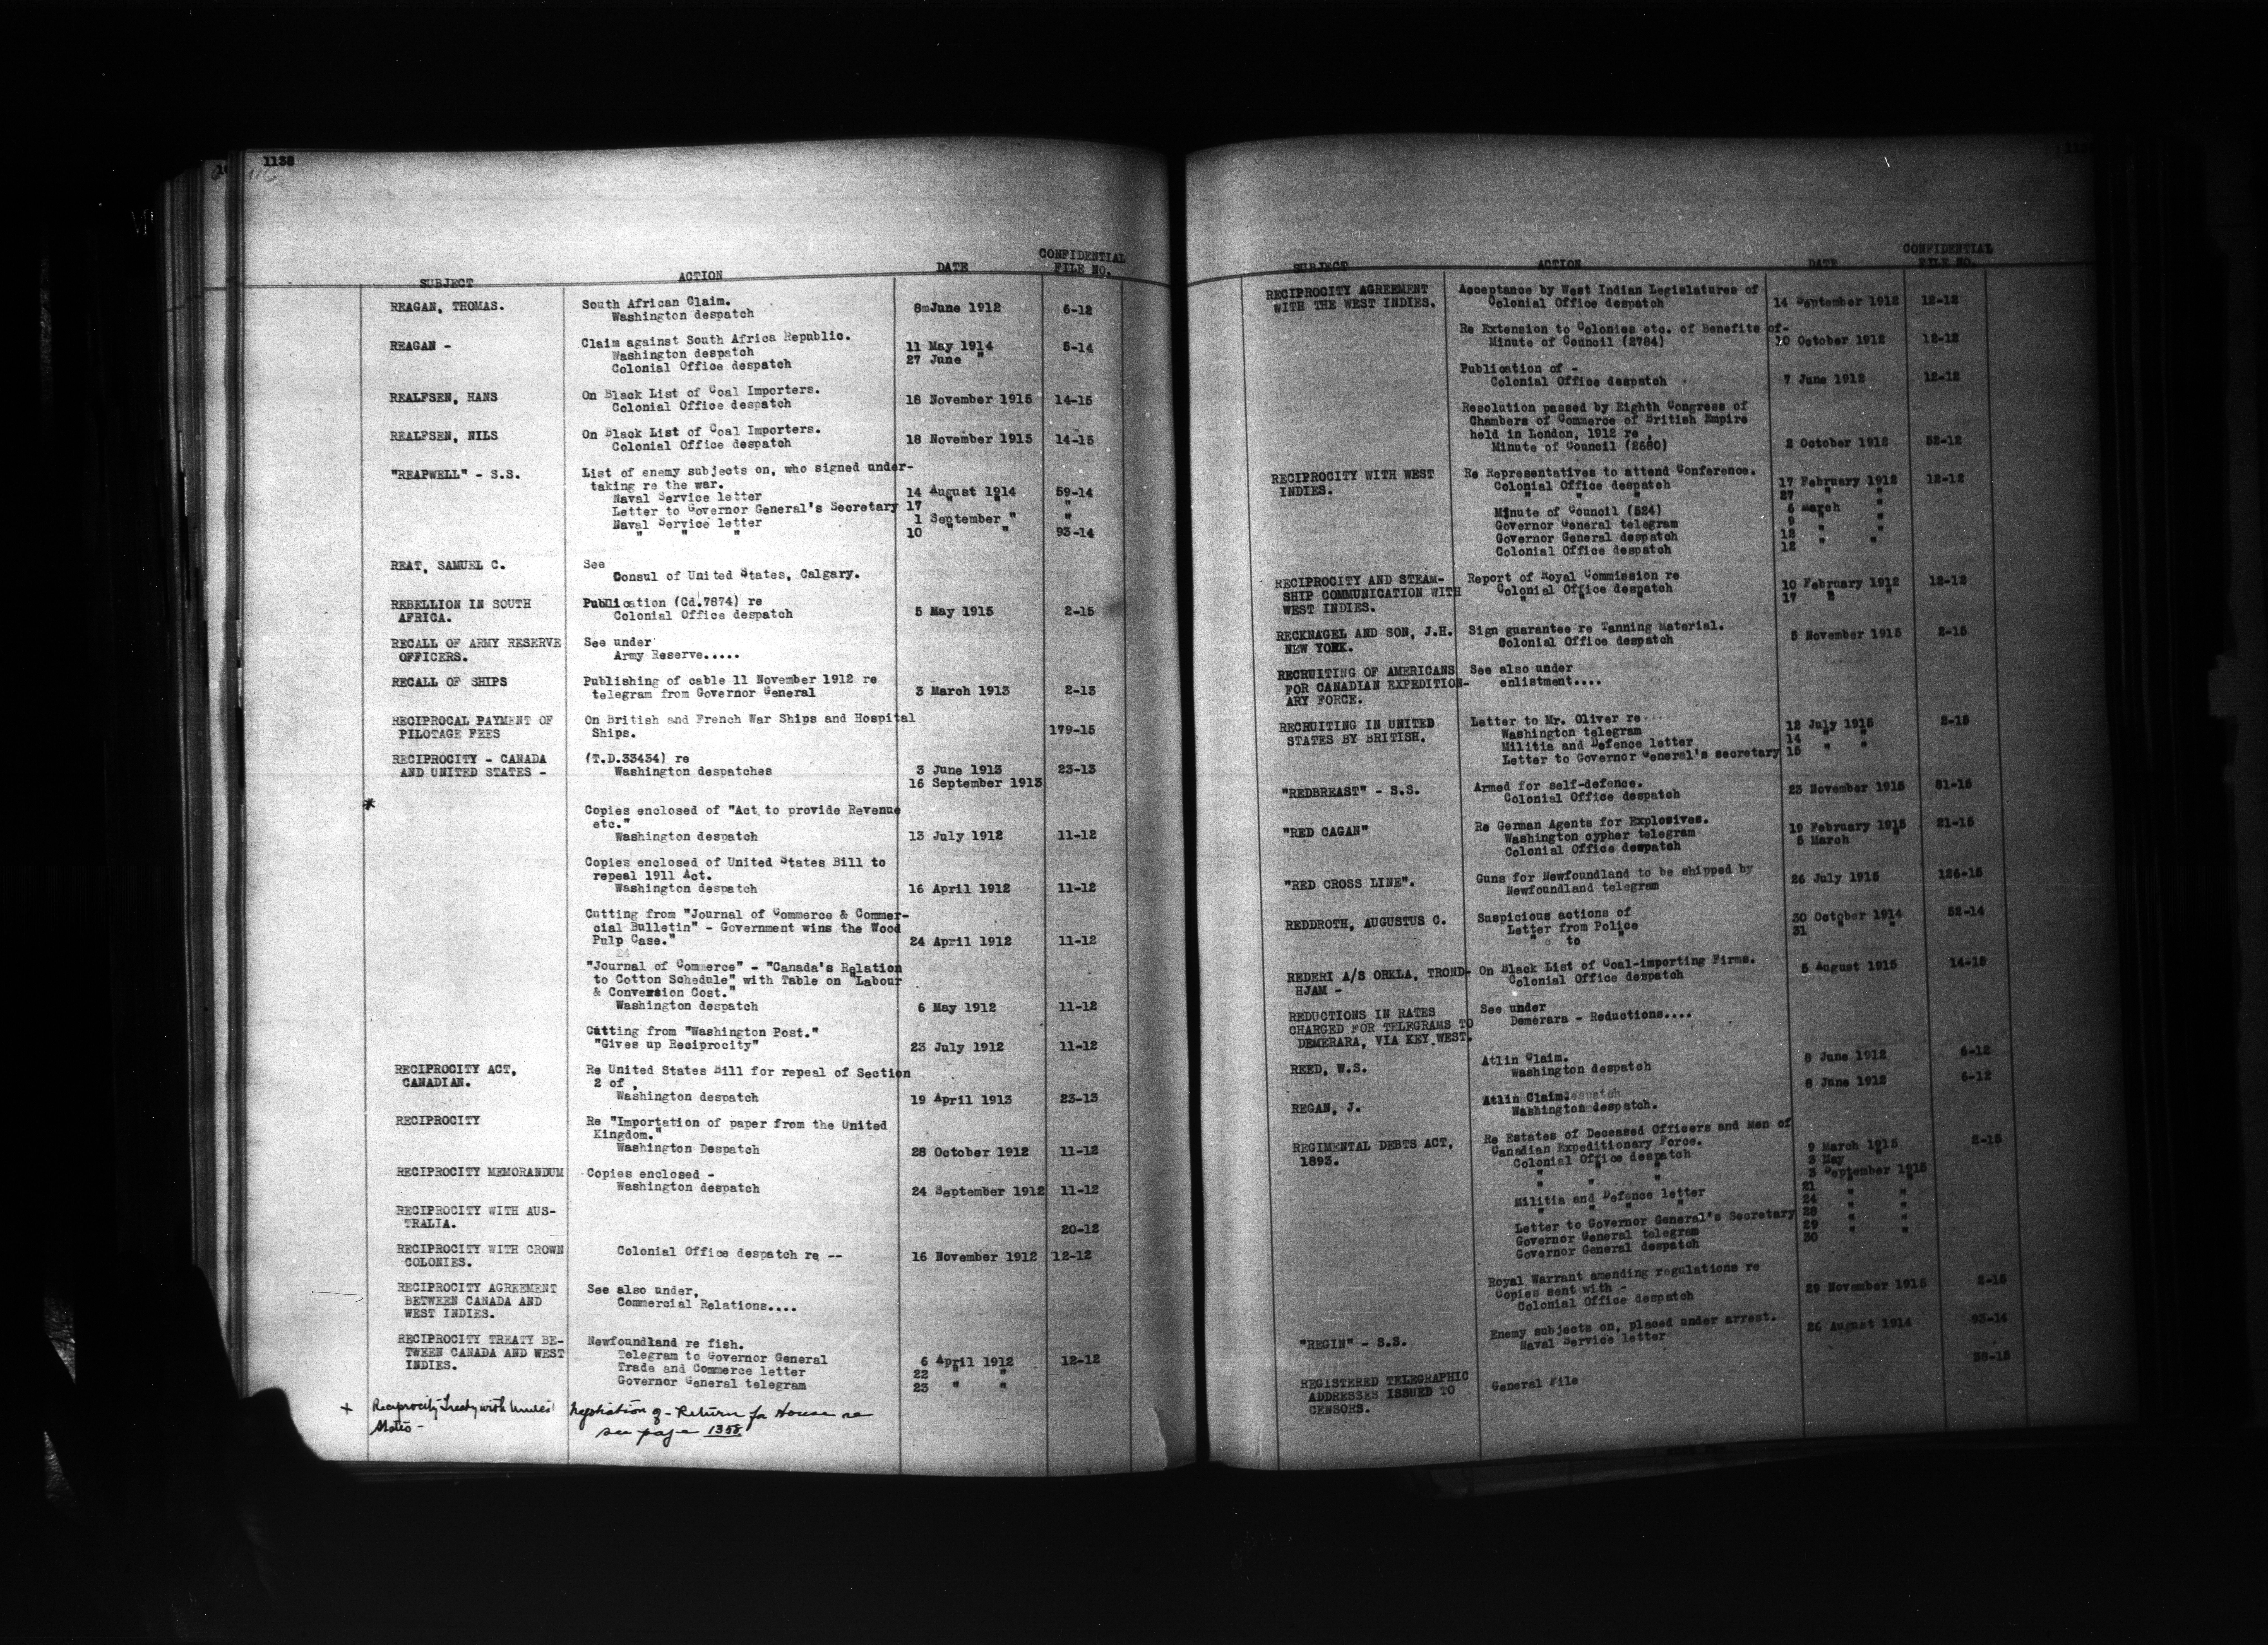 1138
SUBJECT ACTION DATE CONFIDENTIAL FILE NO.
REAGAN, THOMAS. South African Claim.
Washington despatch 8 June 1912 6-12
REAGAN - Claim against South Africa Republic.
Washington despatch 11 May 1914 5-14
Colonial Office despatch 27 June "
REALFSEN, HANS On Black List of Coal Importers.
Colonial Office despatch 18 November 1915 14-15
REALFSEN, NILS On Black List of Coal Importers.
Colonial Office despatch 18 November 1915 14-15
"REAPWELL" - S.S. List of enemy subjects on, who signed under-
taking re the war.
Naval Service letter 14 August 1914 59-14
Letter to Governor General's Secretary 17 " " "
Naval Service letter 1 September " "
" " " 10 " " 93-14
REAT, SAMUEL C. See
Consul of United States, Calgary.
REBELLION IN SOUTH Publication (Cd.7874) re
AFRICA. Colonial Office despatch 5 May 1915 2-15
RECALL OF ARMY RESERVE See under
OFFICERS. Army Reserve.....
RECALL OF SHIPS Publishing of cable 11 November 1912 re
telegram from Governor General 3 March 1913 2-13
RECIPROCAL PAYMENT OF On British and French War Ships and Hospital
PILOTAGE FEES Ships. 179-15
RECIPROCITY - CANADA (T.D.33434) re
AND UNITED STATES - Washington despatches 3 June 1913 23-13
16 September 1913
*
Copies enclosed of "Act to provide Revenue
etc."
Washington despatch 13 July 1912 11-12
Copies enclosed of United States Bill to
repeal 1911 Act.
Washington despatch 16 April 1912 11-12
Cutting from "Journal of Commerce & Commer-
cial Bulletin" - Government wins the Wood
Pulp Case." 24 April 1912 11-12
"Journal of Commerce" - "Canada's Relation
to Cotton Schedule" with Table on "Labour
& Conversion Cost."
Washington despatch 6 May 1912 11-12
Cutting from "Washington Post."
"Gives up Reciprocity" 23 July 1912 11-12
RECIPROCITY ACT, Re United States Bill for repeal of Section
CANADIAN. 2 of ,
Washington despatch 19 April 1913 23-13
RECIPROCITY Re "Importation of paper from the United
Kingdom."
Washington Despatch 28 October 1912 11-12
RECIPROCITY MEMORANDUM Copies enclosed -
Washington despatch 24 September 1912 11-12
RECIPROCITY WITH AUS-
TRALIA. 20-12
RECIPROCITY WITH CROWN Colonial Office despatch re -- 16 November 1912 12-12
COLONIES.
RECIPROCITY AGREEMENT See also under,
BETWEEN CANADA AND Commercial Relations....
WEST INDIES.
RECIPROCITY TREATY BE- Newfoundland re fish.
TWEEN CANADA AND WEST Telegram to Governor General 6 April 1912 12-12
INDIES. Trade and Commerce letter 22 " "
Governor General telegram 23 " "
+ Reciprocity Treaty with United Negotiation of - Return for House re
States - see page 1358
SUBJECT ACTION DATE CONFIDENTIAL FILE NO.
RECIPROCITY AGREEMENT Acceptance by West Indian Legislatures of
WITH THE WEST INDIES. Colonial Office despatch 14 September 1912 12-12
Re Extension to Colonies etc. of Benefits of-
Minute of Council (2784) 10 October 1912 12-12
Publication of -
Colonial Office despatch 7 June 1912 12-12
Resolution passed by Eighth Congress of
Chambers of Commerce of British Empire
held in London, 1912 re ,
Minute of Council (2680) 2 October 1912 52-12
RECIPROCITY WITH WEST Re Representatives to attend Conference.
INDIES. Colonial Office despatch 17 February 1912 12-12
" " " 27 " "
Minute of Council (524) 5 March "
Governor General telegram 9 " "
Governor General despatch 12 " "
Colonial Office despatch 12
RECIPROCITY AND STEAM- Report of Royal Commission re
SHIP COMMUNICATION WITH Colonial Office despatch 10 February 1912 12-12
WEST INDIES. " " " 17 " "
RECKNAGEL AND SON, J.H. Sign guarantee re Tanning Material.
NEW YORK. Colonial Office despatch 5 November 1915 2-15
RECRUITING OF AMERICANS See also under
FOR CANADIAN EXPEDITION- enlistment....
ARY FORCE.
RECRUITING IN UNITED Letter to Mr. Oliver re
STATES BY BRITISH. Washington telegram 12 July 1915 2-15
Militia and Defence letter 14 " "
Letter to Governor General's secretary 15 " "
"REDBREAST" - S.S. Armed for self-defence.
Colonial Office despatch 23 November 1915 81-15
"RED CAGAN" Re German Agents for Explosives.
Washington cypher telegram 19 February 1915 21-15
Colonial Office despatch 5 March "
"RED CROSS LINE". Guns for Newfoundland to be shipped by
Newfoundland telegram 26 July 1915 126-15
REDDROTH, AUGUSTUS C. Suspicious actions of
Letter from Police 30 October 1914 52-14
" to " 31 " "
REDERI A/S ORKLA, TROND- On Black List of Coal-importing Firms.
HJAM - Colonial Office despatch 5 August 1915 14-15
REDUCTIONS IN RATES See under
CHARGED FOR TELEGRAMS TO Demerara - Reductions....
DEMERARA, VIA KEY WEST.
REED, W.S. Atlin Claim.
Washington despatch 8 June 1912 6-12
REGAN, J. Atlin Claim.
Washington despatch. 8 June 1912 6-12
REGIMENTAL DEBTS ACT, Re Estates of Deceased Officers and Men of
1893. Canadian Expeditionary Force.
Colonial Office despatch 9 March 1915 2-15
" " " 3 May "
" " " 3 September 1915
Militia and Defence letter 21 " "
" " " 24 " "
Letter to Governor General's Secretary 28 " "
Governor General telegram 29 " "
Governor General despatch 30
Royal Warrant amending regulations re
Copies sent with -
Colonial Office despatch 29 November 1915 2-15
"REGIN" - S.S. Enemy subjects on, placed under arrest.
Naval Service letter 26 August 1914 93-14
REGISTERED TELEGRAPHIC General File 38-15
ADDRESSES ISSUED TO
CENSORS.